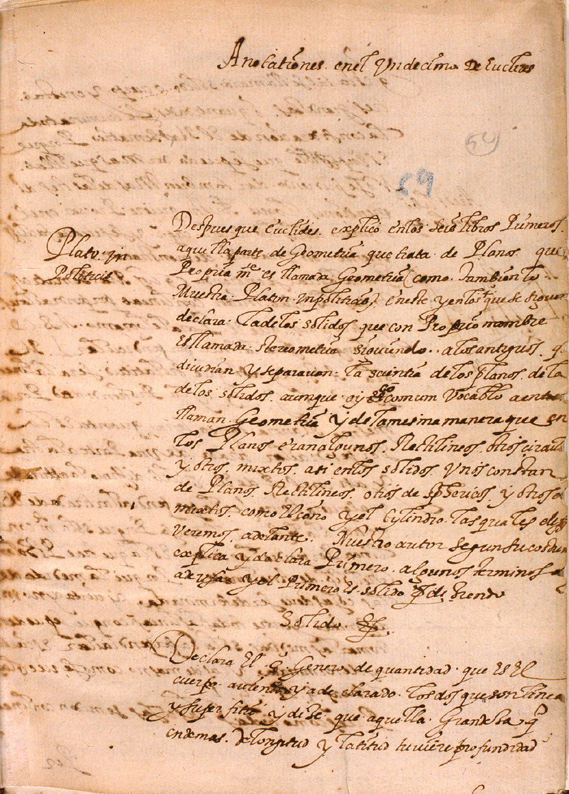 Anotationes en el Undecimo de Euclides
54
59
Plato in
Politicis
Despues que Euclides explicó en los seis libros Primeros
aquella parte de Geometria que trata de Planos que
Propria m.te es llamada Geometria, como tambien lo
Muestra Platon in politicis, en este y en los que se siguen
declara la de los solidos que con Proprio nombre
es llamada stereometria siguiendo a los antiguos q
dividian y separavan la scientia de los Planos de la
de los solidos aunque oy con comun vocablo a entra
llaman Geometria y de la mesma manera que en
los Planos eran algunos Rectilineos otros circula
y otros mixtos asi en los solidos unos constan
de Planos Rectilineos otros de sphericos y otros
mixtos como el cono y el cylindro las quales
veremos adelante. Nuestro autor segun su costum
explica y declara Primero algunos terminos
y el Primero es solido
Solido
Declara el 3. Genero de quantidad que es el
cuerpo aviendo ya declarado los dos que son linea
y superficie y dize que aquella Grandeza q
en demas de longitud y latitud tuviere profundidad